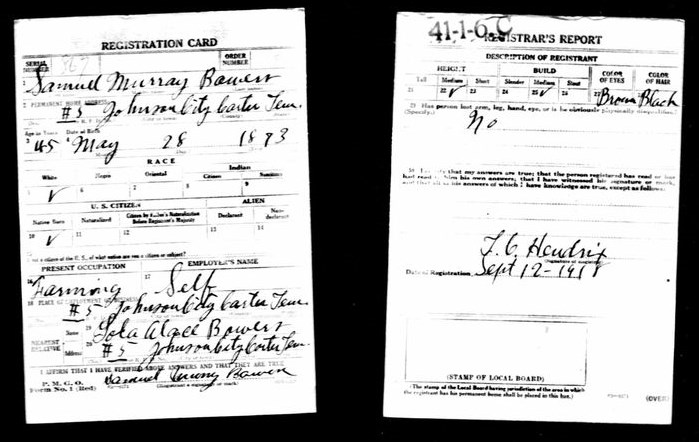 REGISTRATION CARD
SERIAL NUMBER
ORDER NUMBER
1 Samuel Murray Bowers
2 PERMANENT HOME ADDRESS
#5 Johnson City Carter Tenn.
Age in Years Date of Birth
3 45 4 May 28 1873
RACE
White Negro Oriental Indian
Citizen
5 ✓ 6 7 8 9
U. S. CITIZEN ALIEN
Native Born Naturalized Citizen by Father's Naturalization Before Registrant's Majority Declarant Non-declarant
10 ✓ 11 12 13 14
If not a citizen of the U.S., of what nation are you a citizen or subject?
PRESENT OCCUPATION EMPLOYER'S NAME
16 Farming 17 Self
18 PLACE OF EMPLOYMENT OR BUSINESS
#5 Johnson City Carter Tenn.
NEAREST RELATIVE
Name 19 Bowers
Address 20 #5 Johnson City Carter Tenn.
I AFFIRM THAT I HAVE VERIFIED ABOVE ANSWERS AND THAT THEY ARE TRUE
P. M. G. O.
Form No. 1 (Red)
Samuel Bowers
(Registrant's signature or mark)
41-1-6 C REGISTRAR'S REPORT
DESCRIPTION OF REGISTRANT
HEIGHT BUILD COLOR OF EYES COLOR OF HAIR
Tall Medium Short Slender Medium Stout
21 22 ✓ 23 24 25 ✓ 26 27 Brown Black
29 Has person lost arm, leg, hand, eye, or is he obviously physically disqualified?
(Specify.)
No
30 I certify that my answers are true; that the person registered has read or has
had read to him his own answers; that I have witnessed his signature or mark,
and that all of his answers of which I have knowledge are true, except as follows:
Hendrix
(Signature of Registrar)
Date of Registration Sept 12-1918
(STAMP OF LOCAL BOARD)
(The stamp of the Local Board having jurisdiction of the area in which
the registrant has his permanent home shall be placed in this box.)
(OVER)